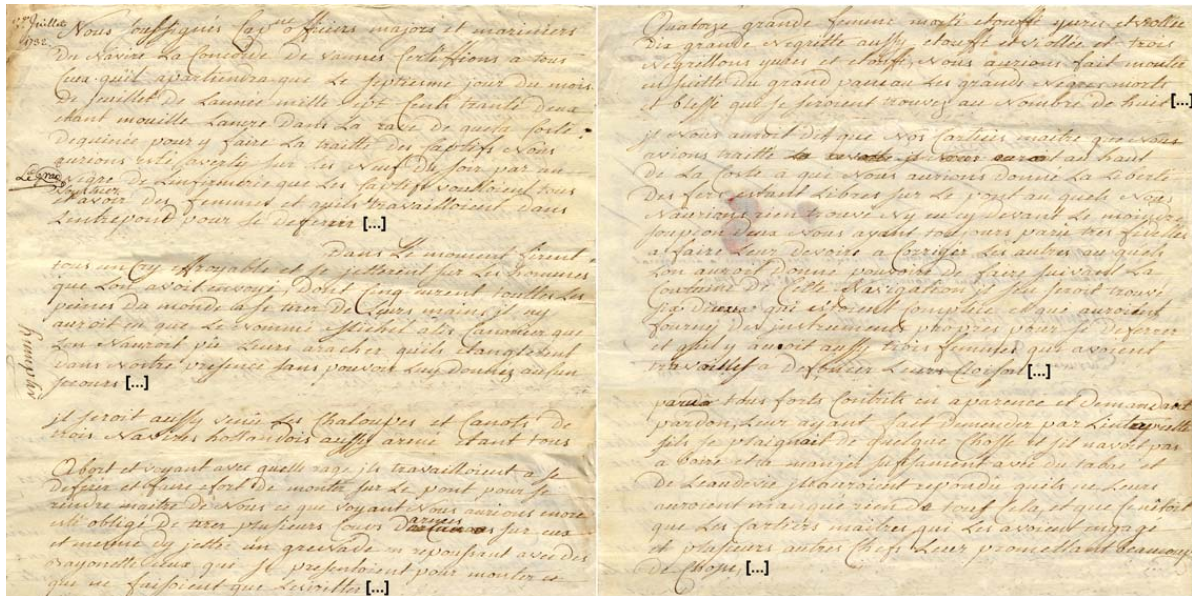 7me Juillet
1732.
Nous soussignés Capne officiers majors et mariniers
Du Navire La Concorde de vannes Certiffions a tous
Ceux quil apartiendra que Le septiesme jour du mois
de jeuillet de Lannée mille sept Cents trante deux
etant mouillé Lancre Dans La rade de
Deguinée pour y faire La traitte des Captifs Nous
aurions esté averty sur Les Neuf du soir par un
Negre de Linfirmerie que Les Captifs voulloient tous
et avoir des femmes et quils travailloient dans
Lentrepont pour se deferrer [...]
Dans Le moment firent
tous un Cry effroyable et se jetterent sur Les hommes
que Lon avoit envoyé, Dont Cinq eurent touttes Les
peines du monde a se tirer de Leurs mains, il ny
auroit eu que Le Nommé Michel Canonier que
Lon Nauroit pû Leurs aracher, quils etranglerent
dans Nostre presence sans pouvoir Luy donner aucun
secours [...]
il seroit aussy venu Les Chaloupes et Canots de
trois Navires hollandois aussy armé, etant tous
Abort et voyant avec quelle rage ils travailloient a se
deferrer et faire efort de monter sur Le pont pour se
rendre maitre de Nous ce que voyant Nous aurions encore
esté obligé de tirer plusieurs Coups Darmes sur eux
et mesme dy jetter un grenade en repoussant avec des
bayonette ceux qui se presentoient pour monter et
qui ne faisoient que [...]
Quatorze grande femme morte etouffé et viollée
Dix grande Negritte aussy etouffé et viollée et trois
Negrillons et etouffé, Nous aurions fait monter
ensuitte du grand paneau Les grands Negres morts
et blessé qui se seroient trouvez au Nombre de huit [...]
il Nous auroit dit que Nos Cartiers maitre que Nous
avions traitté au haut
de La Coste a qui Nous aurions donné La Liberté
Des fers etant Libres sur Le pont au quels Nous
Naurions rien trouvé Ny en cy devant Le moindre
soupçon deux Nous ayant toujours parû tres fidelles
a faire Leur devoirs a Corriger Les autres au quels
Lon auroit donné pouvoir de faire suivant La
Coutume de Cette Navigation il sen seroit trouvé
six deux qui estoient Complice et qui auroient
fourny des instruments propres pour se deferrer
et quil y auroit aussy trois femmes qui avoient
travaillés a Leurs Cloison [...]
parus tous forts Contrits en aparence et demandant
pardon, Leur ayant fait demander par Linterprette
sils se plaignait de quelque Chosse et sil navoit pas
a boire et a manger suffisament avec du tabac et
de Leaudevie, ils auroient repondé quils ne Leurs
auroient manqué rien de tous Cela, et que Cenetoit
que Les Cartiers maitres qui Les avoient engagé
et plusieurs autres Chefs Leur promettant beaucoup
de Chosse, [...]